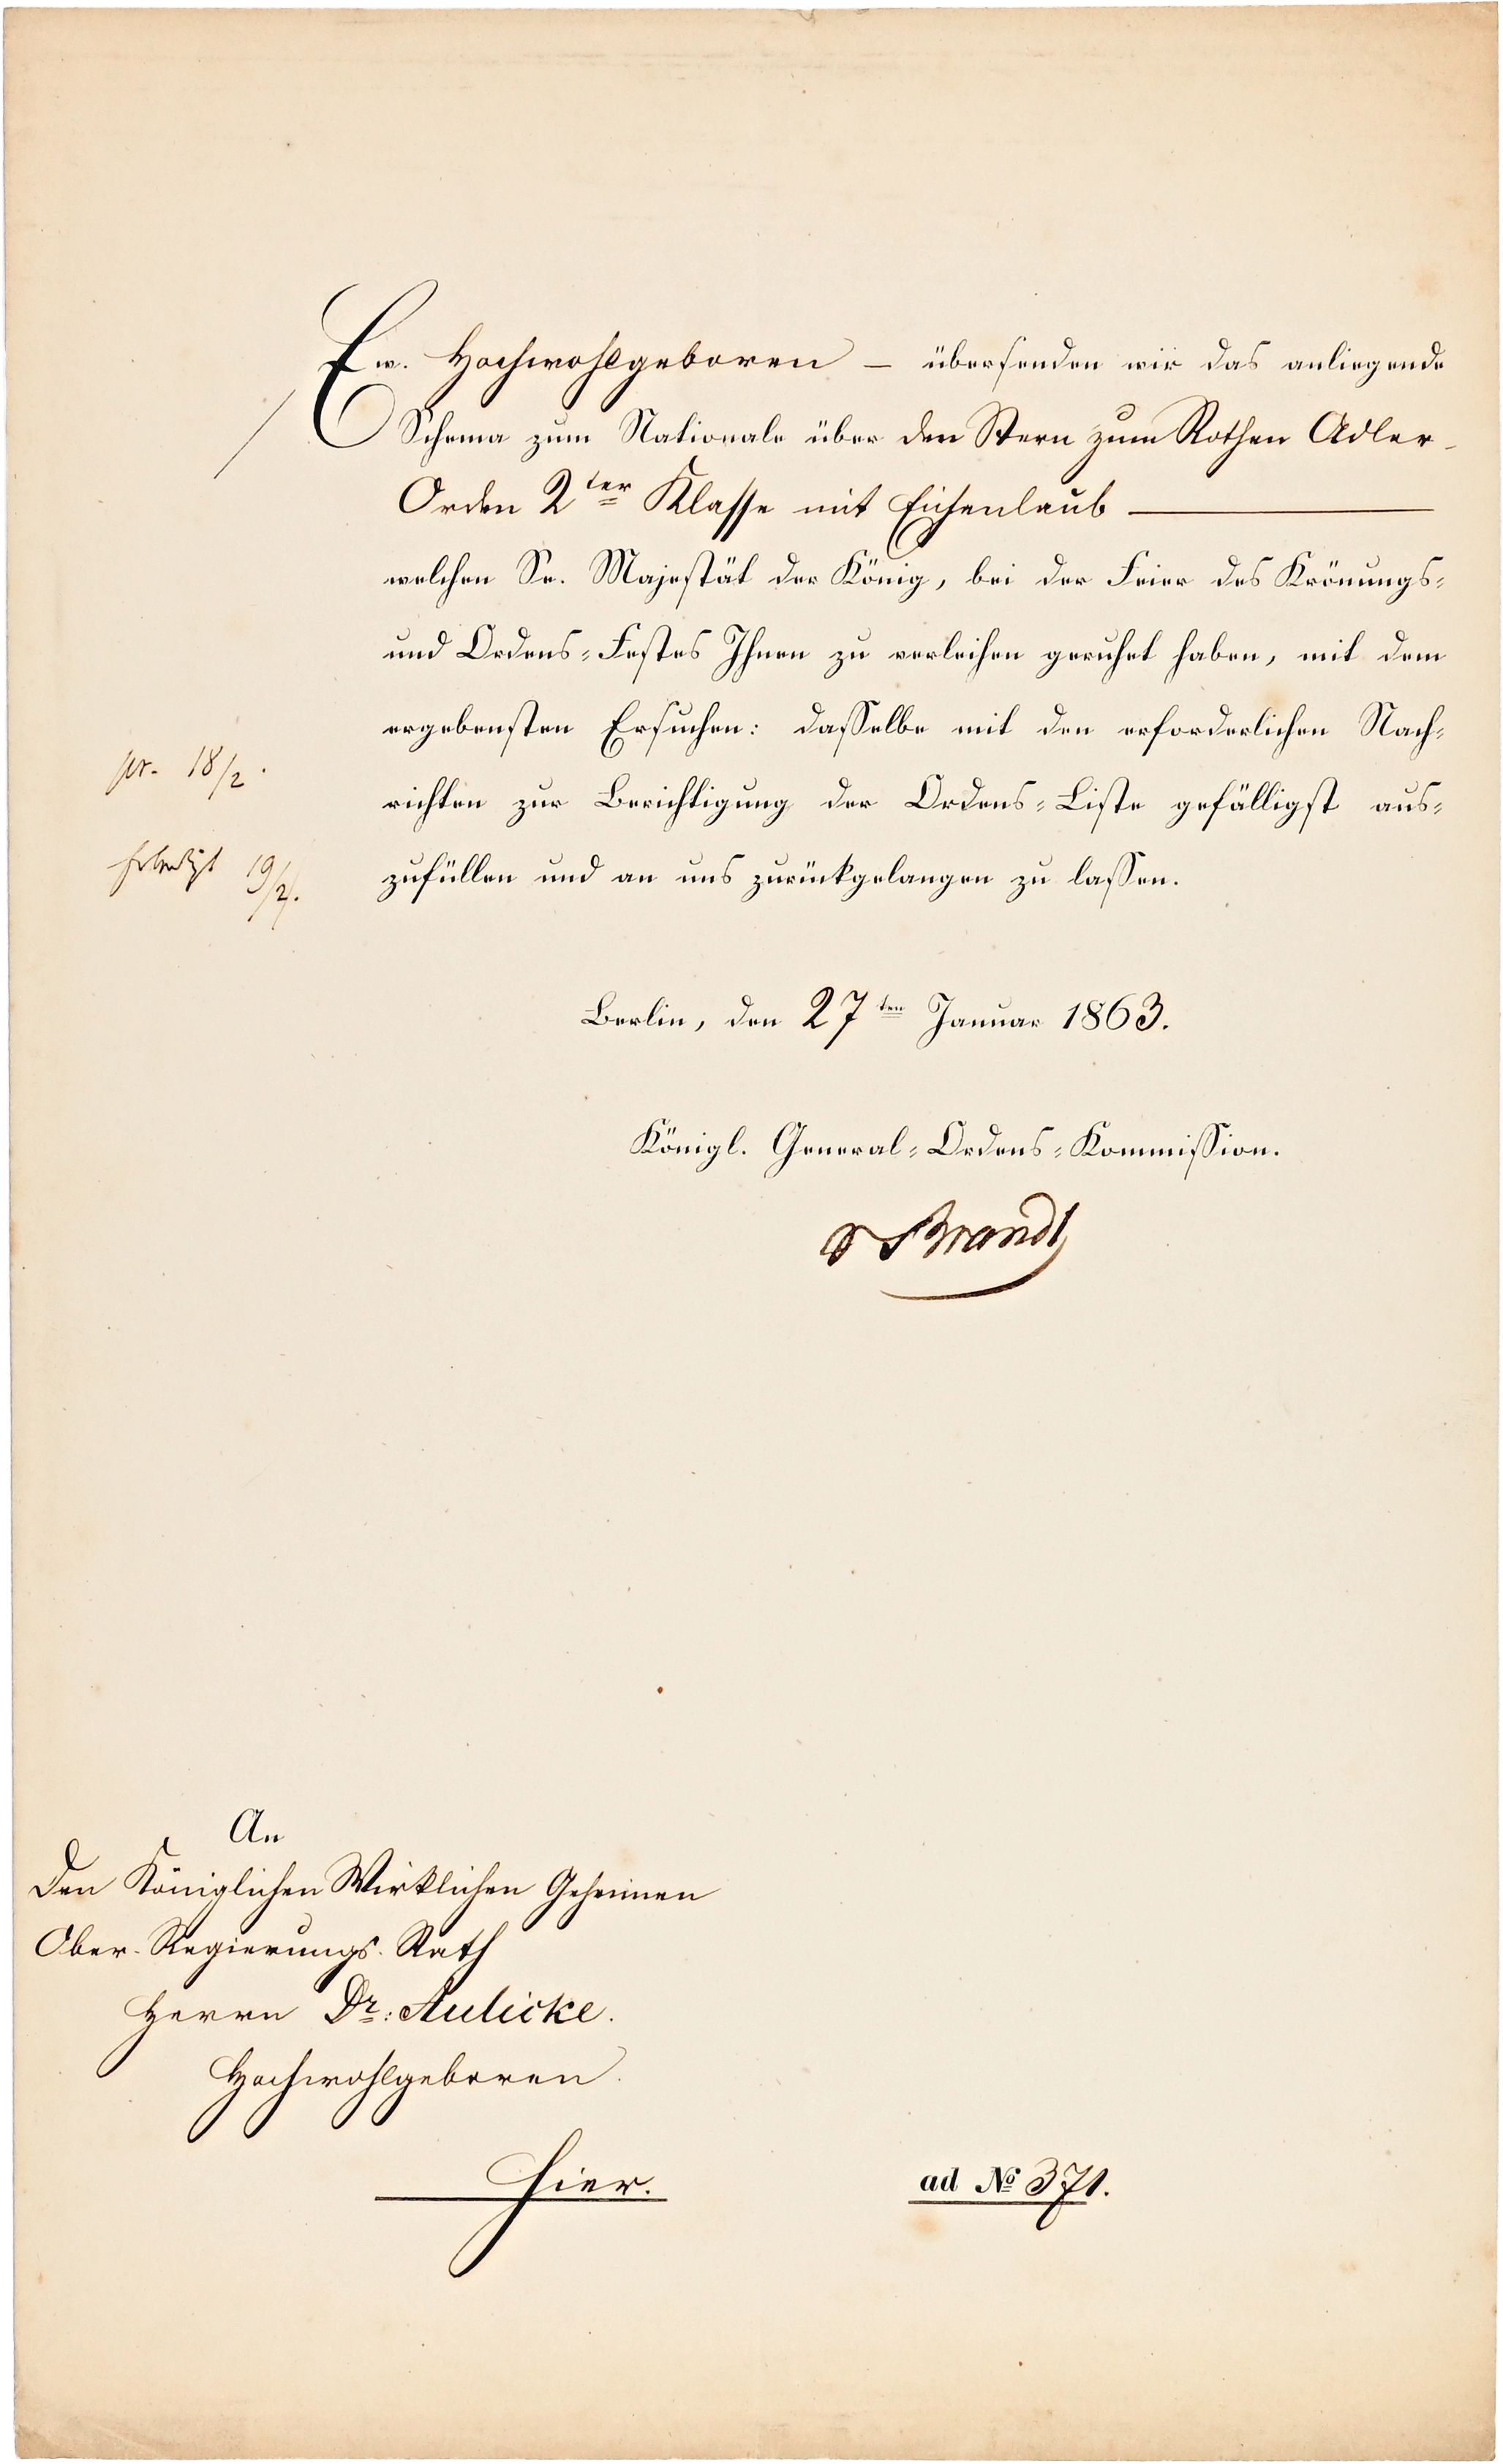 Ew. Hochwohlgeboren – übersenden wir das anliegende
Schema zum Nationale über den Stern zum Rothen Adler-
Orden 2ter Klasse mit Eichenlaub
welchen Se. Majestät der König, bei der Feier des Krönungs-
und Ordens-Festes Ihnen zu verleihen geruhet haben, mit dem
ergebensten Ersuchen: dasselbe mit den erforderlichen Nach-
pr. 18/2.
richten zur Berichtigung der Ordens-Liste gefälligst aus-
erledigt 19/2.
zufüllen und an uns zurückgelangen zu lassen.
Berlin, den 27ten Januar 1863.
Königl. General-Ordens-Kommission.
Brandt
An
Den Königlichen Wirklichen Geheimen
Ober-Regierungs-Rath
Herrn Dr: Aulicke.
Hochwohlgeboren.
hier.
ad No 371.